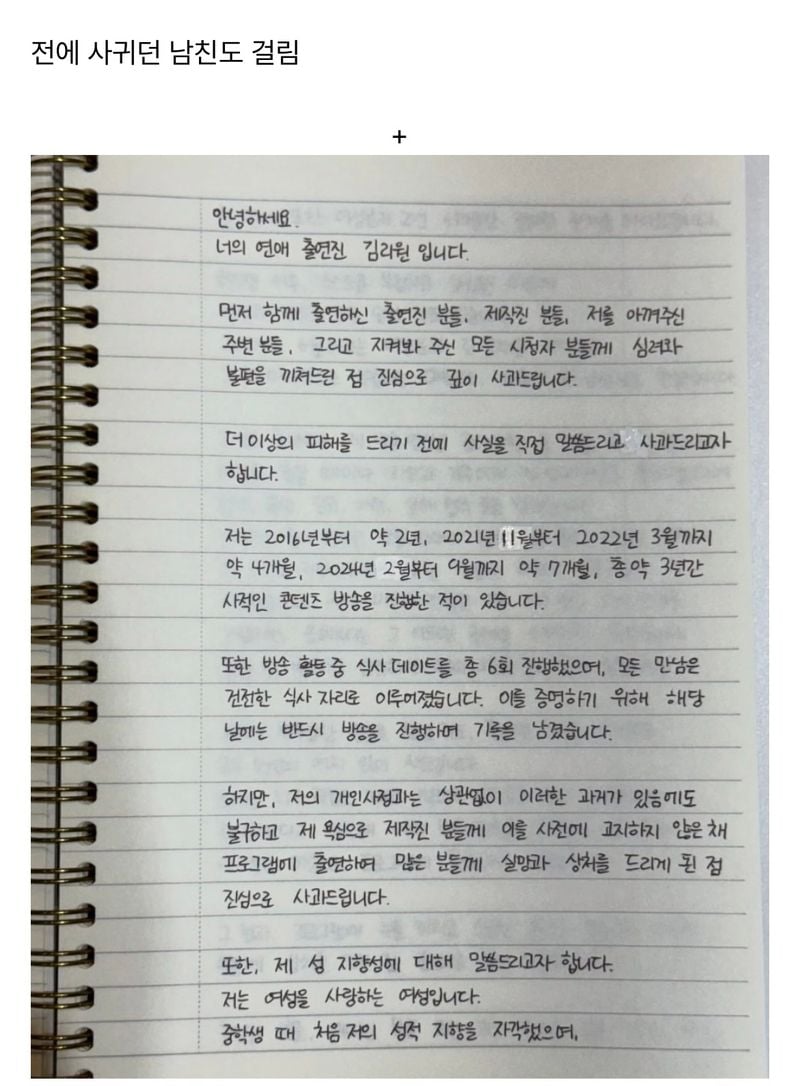 전에 사귀던 남친도 걸림
+
안녕하세요.
너의 연애 출연진 김라원 입니다.
먼저 함께 출연하신 출연진 분들, 제작진 분들, 저를 아껴주신
주변 분들, 그리고 지켜봐 주신 모든 시청자 분들께 심려와
불편을 끼쳐드린 점 진심으로 깊이 사과드립니다.
더 이상의 피해를 드리기 전에 사실을 직접 말씀드리고 사과드리고자
합니다.
저는 2016년부터 약 2년, 2021년 11월부터 2022년 3월까지
약 4개월, 2024년 2월부터 9월까지 약 7개월, 총 약 3년간
사적인 콘텐츠 방송을 진행한 적이 있습니다.
또한 방송 활동 중 식사 데이트를 총 6회 진행했으며, 모든 만남은
건전한 식사 자리로 이루어졌습니다. 이를 증명하기 위해 해당
날에는 반드시 방송을 진행하며 기록을 남겼습니다.
하지만, 저의 개인사정과는 상관없이 이러한 과거가 있음에도
불구하고 제 욕심으로 제작진 분들께 이를 사전에 고지하지 않은 채
프로그램에 출연하여 많은 분들께 실망과 상처를 드리게 된 점
진심으로 사과드립니다.
또한, 제 성 지향성에 대해 말씀드리고자 합니다.
저는 여성을 사랑하는 여성입니다.
중학생 때 처음 저의 성적 지향을 자각했으며,